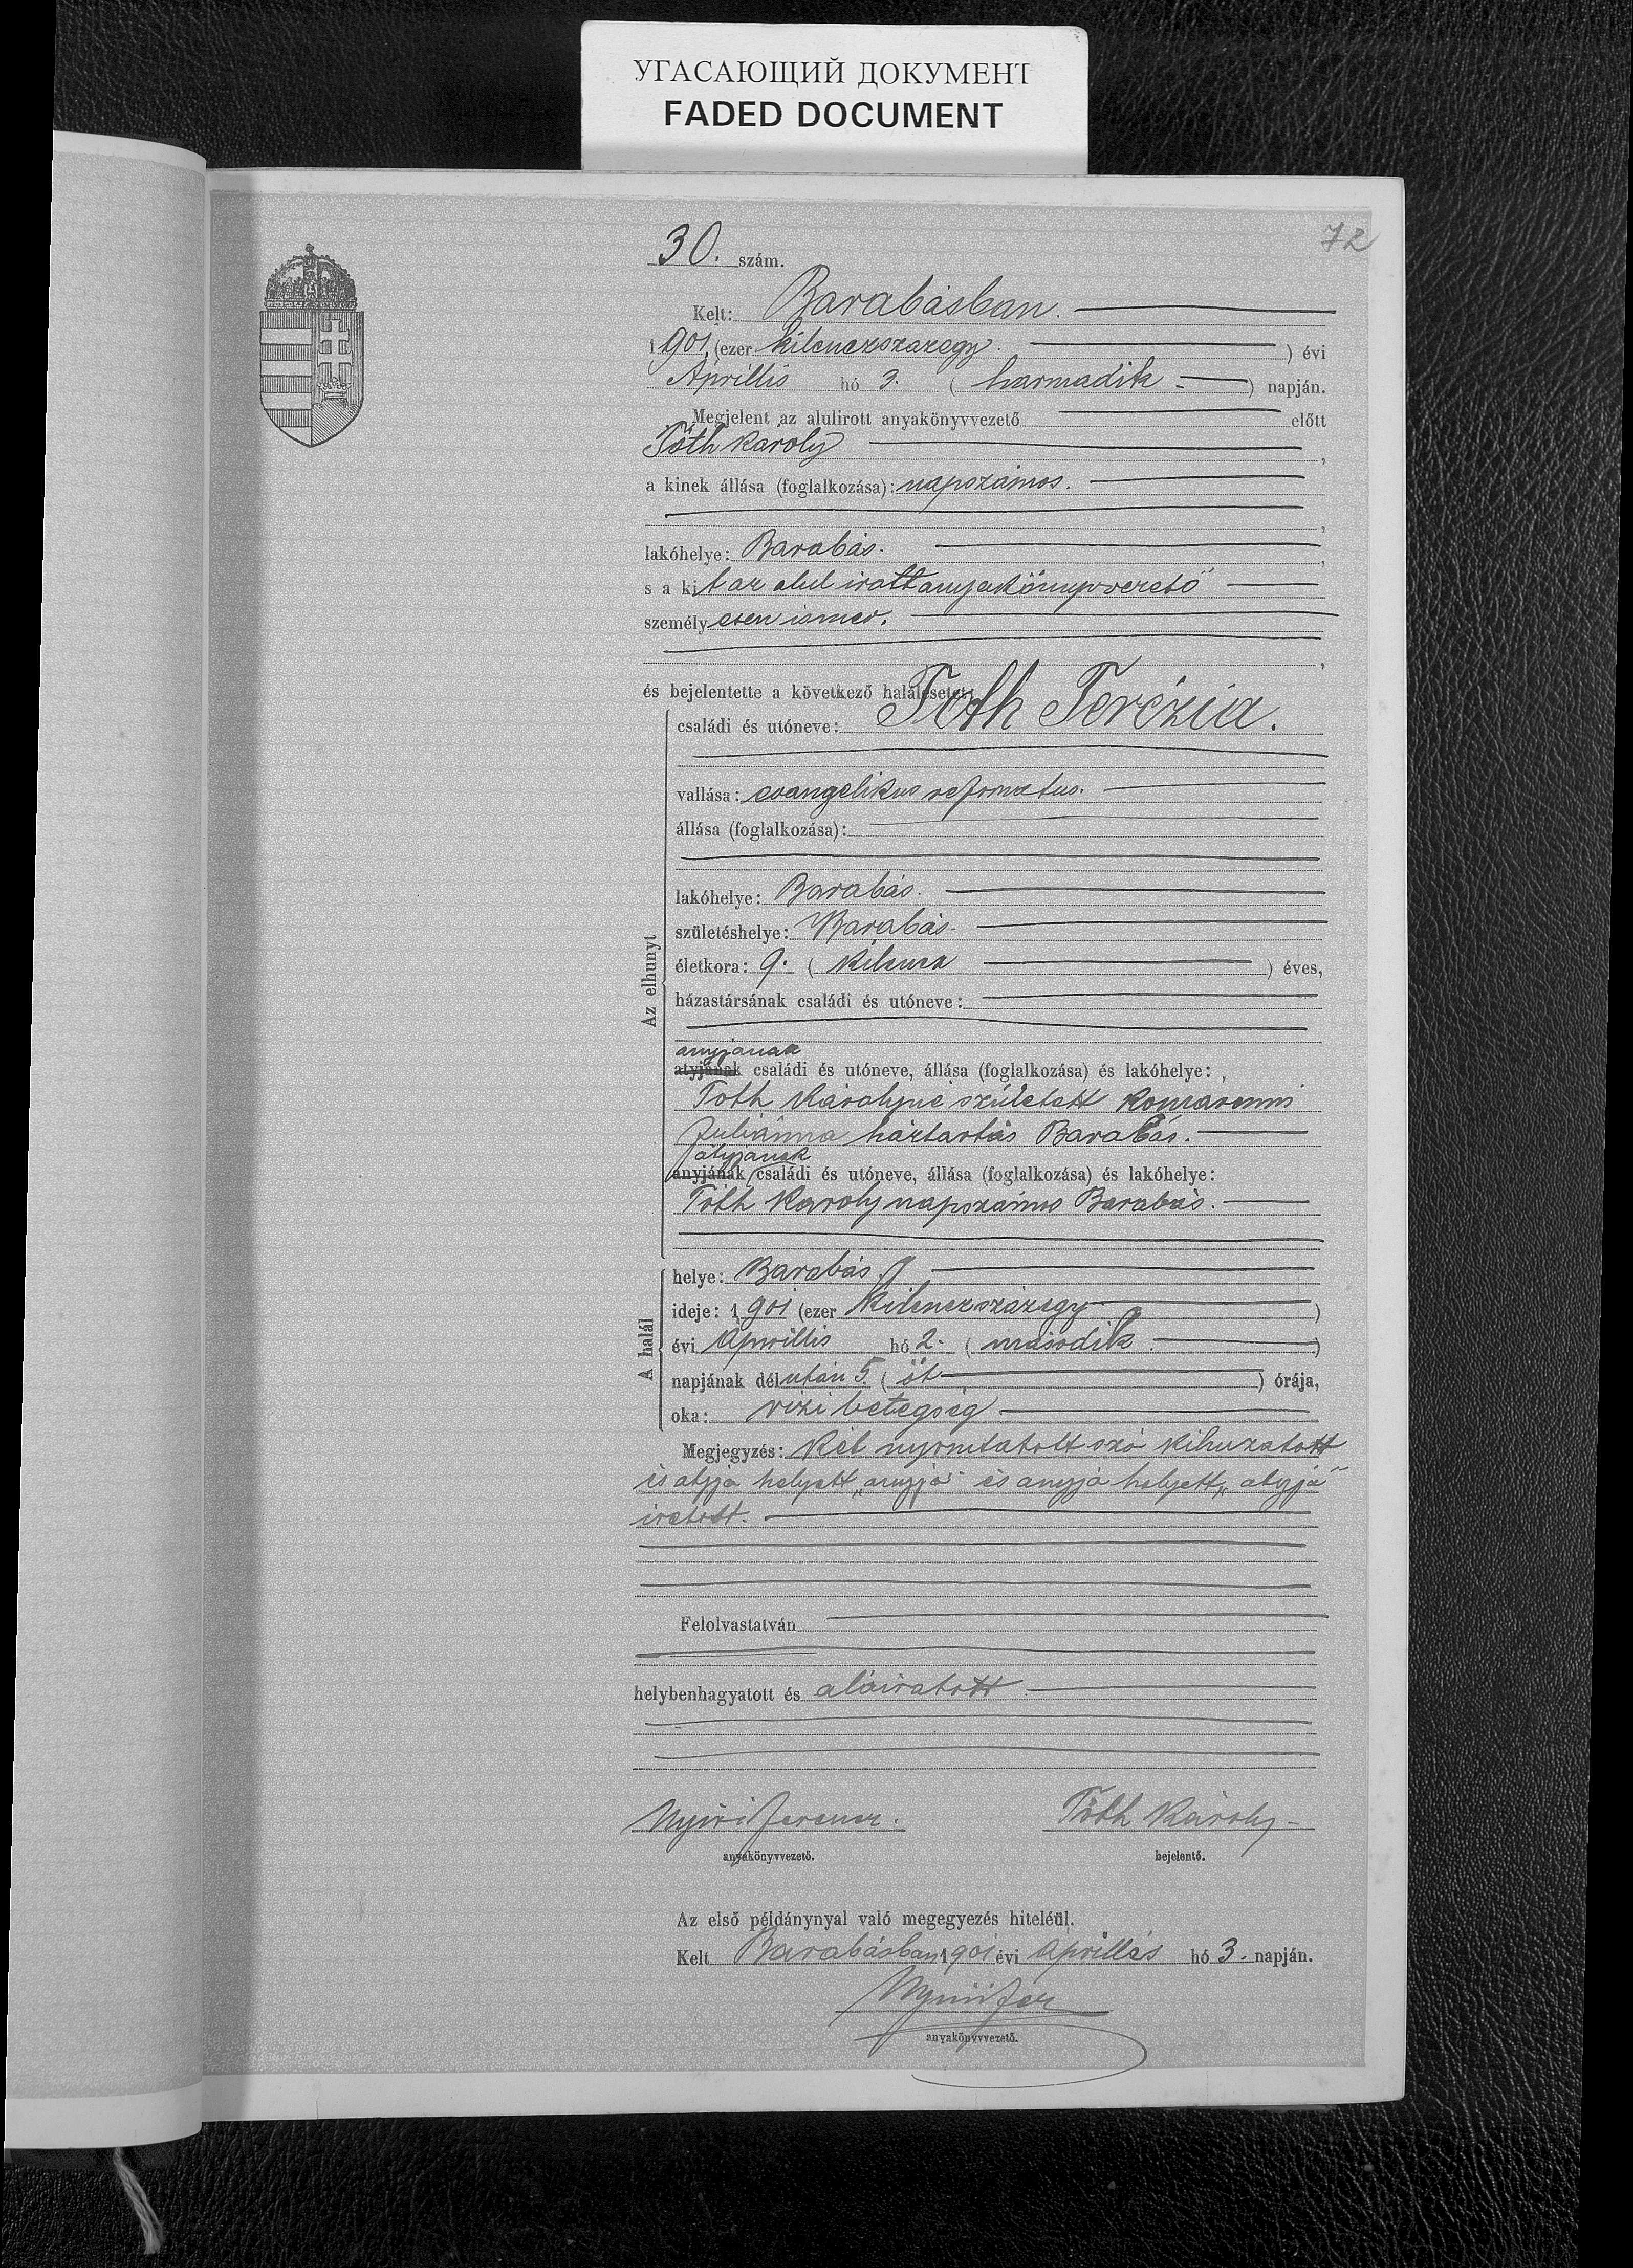 УГАСАЮЩИЙ ДОКУМЕНТ
FADED DOCUMENT
72
30. szám.
Kelt: Barabásban.
1901. (ezer kilenczszazegy. ) évi
Aprillis hó 3. ( harmadik - ) napján.
Megjelent az alulirott anyakönyvvezető előtt
Tóth Karoly ,
a kinek állása (foglalkozása): napszámos.
,
lakóhelye: Barabás. ,
s a kit az alul irott anyakönyvvezető
személyesen ismer.
,
és bejelentette a következő halálesetet:
családi és utóneve: Tóth Terézia.
vallása: evangelikus reformatus.
állása (foglalkozása):
lakóhelye: Barabás.
születéshelye: Barabás.
Az elhunyt
életkora: 9. ( kilencz ) éves,
házastársának családi és utóneve:
anyjának
atyjának családi és utóneve, állása (foglalkozása) és lakóhelye: ,
Toth Károlyné született
Juliánna háztartás Barabás.
atyjanak
anyjának családi és utóneve, állása (foglalkozása) és lakóhelye:
Tóth Karoly napszámos Barabás.
helye: Barabás.
ideje: 1901 (ezer kilenczszázegy )
A halál
évi Aprillis hó 2. ( második )
napjának délután 5. ( öt ) órája,
oka: vizi betegség
Megjegyzés: Két nyomtatott szó kihuzatott
és atyja helyett „anyja“ és anyja helyett „atyja“
iratott.
Felolvastatván
helybenhagyatott és aláiratott
Nyiri Ferencz. Tóth Károly
anyakönyvvezető. bejelentő.
Az első példánynyal való megegyezés hiteléül.
Kelt Barabásban 1901 évi Aprillis hó 3. napján.
Nyiri Fer
anyakönyvvezető.